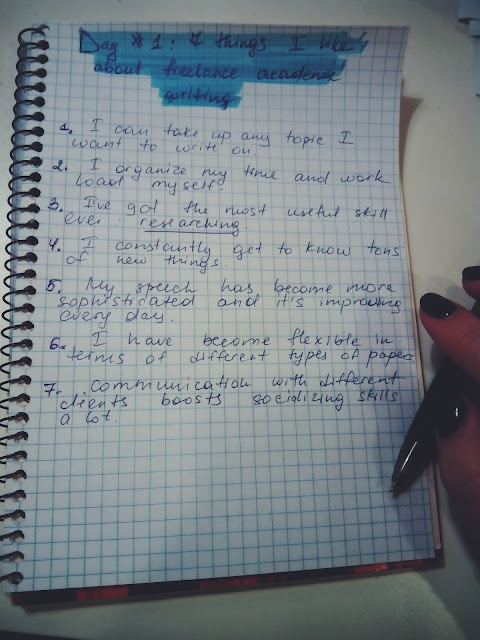 Day # 1: 7 things I like
about freelance academic
writing
1. I can take up any topic I
want to write on.
2. I organize my time and work
load myself.
3. I've got the most useful skill
ever: researching
4. I constantly get to know tons
of new things.
5. My speech has become more
sophisticated and it's improving
every day.
6. I have become flexible in
terms of different types of papers.
7. Communication with different
clients boosts socializing skills
a lot.